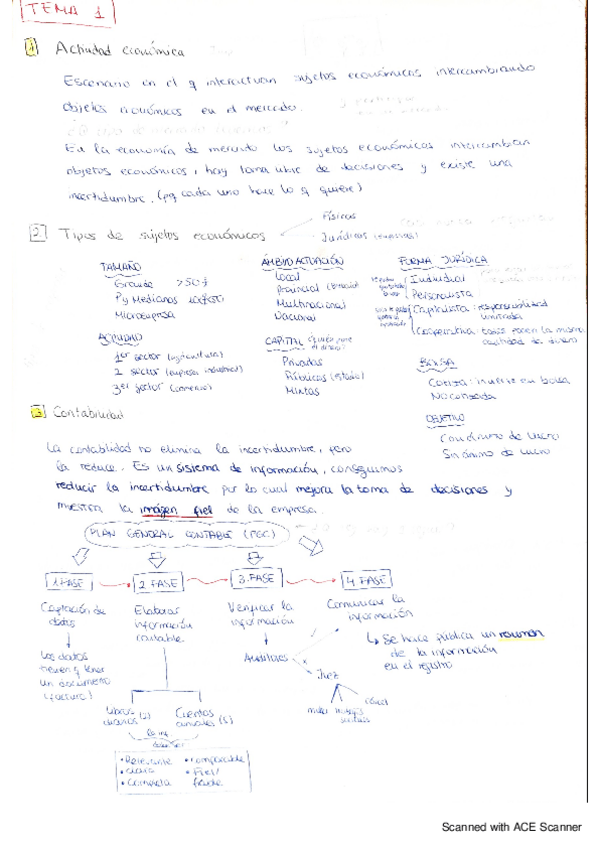 TEMA 1
1 Actividad económica
Escenario en el q interactuan sujetos económicos intercambiando
objetos económicos en el mercado.
En la economía de mercado los sujetos económicos intercambian
objetos económicos, hay toma libre de decisiones y existe una
incertidumbre. (pq cada uno hace lo q quiere)
2 Tipos de sujetos económicos
Físicos
Jurídicos (empresas)
TAMAÑO
Grande >50
Py Medianas
Microempresa
ÁMBITO ACTUACIÓN
Local
Provincial
Multinacional
Nacional
FORMA JURÍDICA
Individual
Personalista
Capitalista: responsabilidad
limitada
Cooperativa: todos ponen la misma
cantidad de dinero
ACTIVIDAD
1er sector (agricultura)
2 sector (empresa industrial)
3er sector (comercio)
CAPITAL
Privadas
Públicas (estado)
Mixtas
BOLSA
Cotiza: invierte en bolsa
No cotizada
OBJETIVO
Con ánimo de lucro
Sin ánimo de lucro
3 Contabilidad
La contabilidad no elimina la incertidumbre, pero
la reduce. Es un sistema de información, conseguimos
reducir la incertidumbre por lo cual mejora la toma de decisiones y
muestra la imágen fiel de la empresa.
PLAN GENERAL CONTABLE (PGC)
1.FASE
2.FASE
3.FASE
4.FASE
Captación de
datos
Los datos
tienen q tener
un documento
(factura)
Elaborar
información
contable
Libros
diarios (2)
Cuentas
anuales (5)
La inf.
• Relevante
• clara
• Completa
• comparable
• Fiel/
Verificar la
información
Auditores
Juez
Comunicar la
información
↳ Se hace pública un resumen
de la información
en el registro
Scanned with ACE Scanner